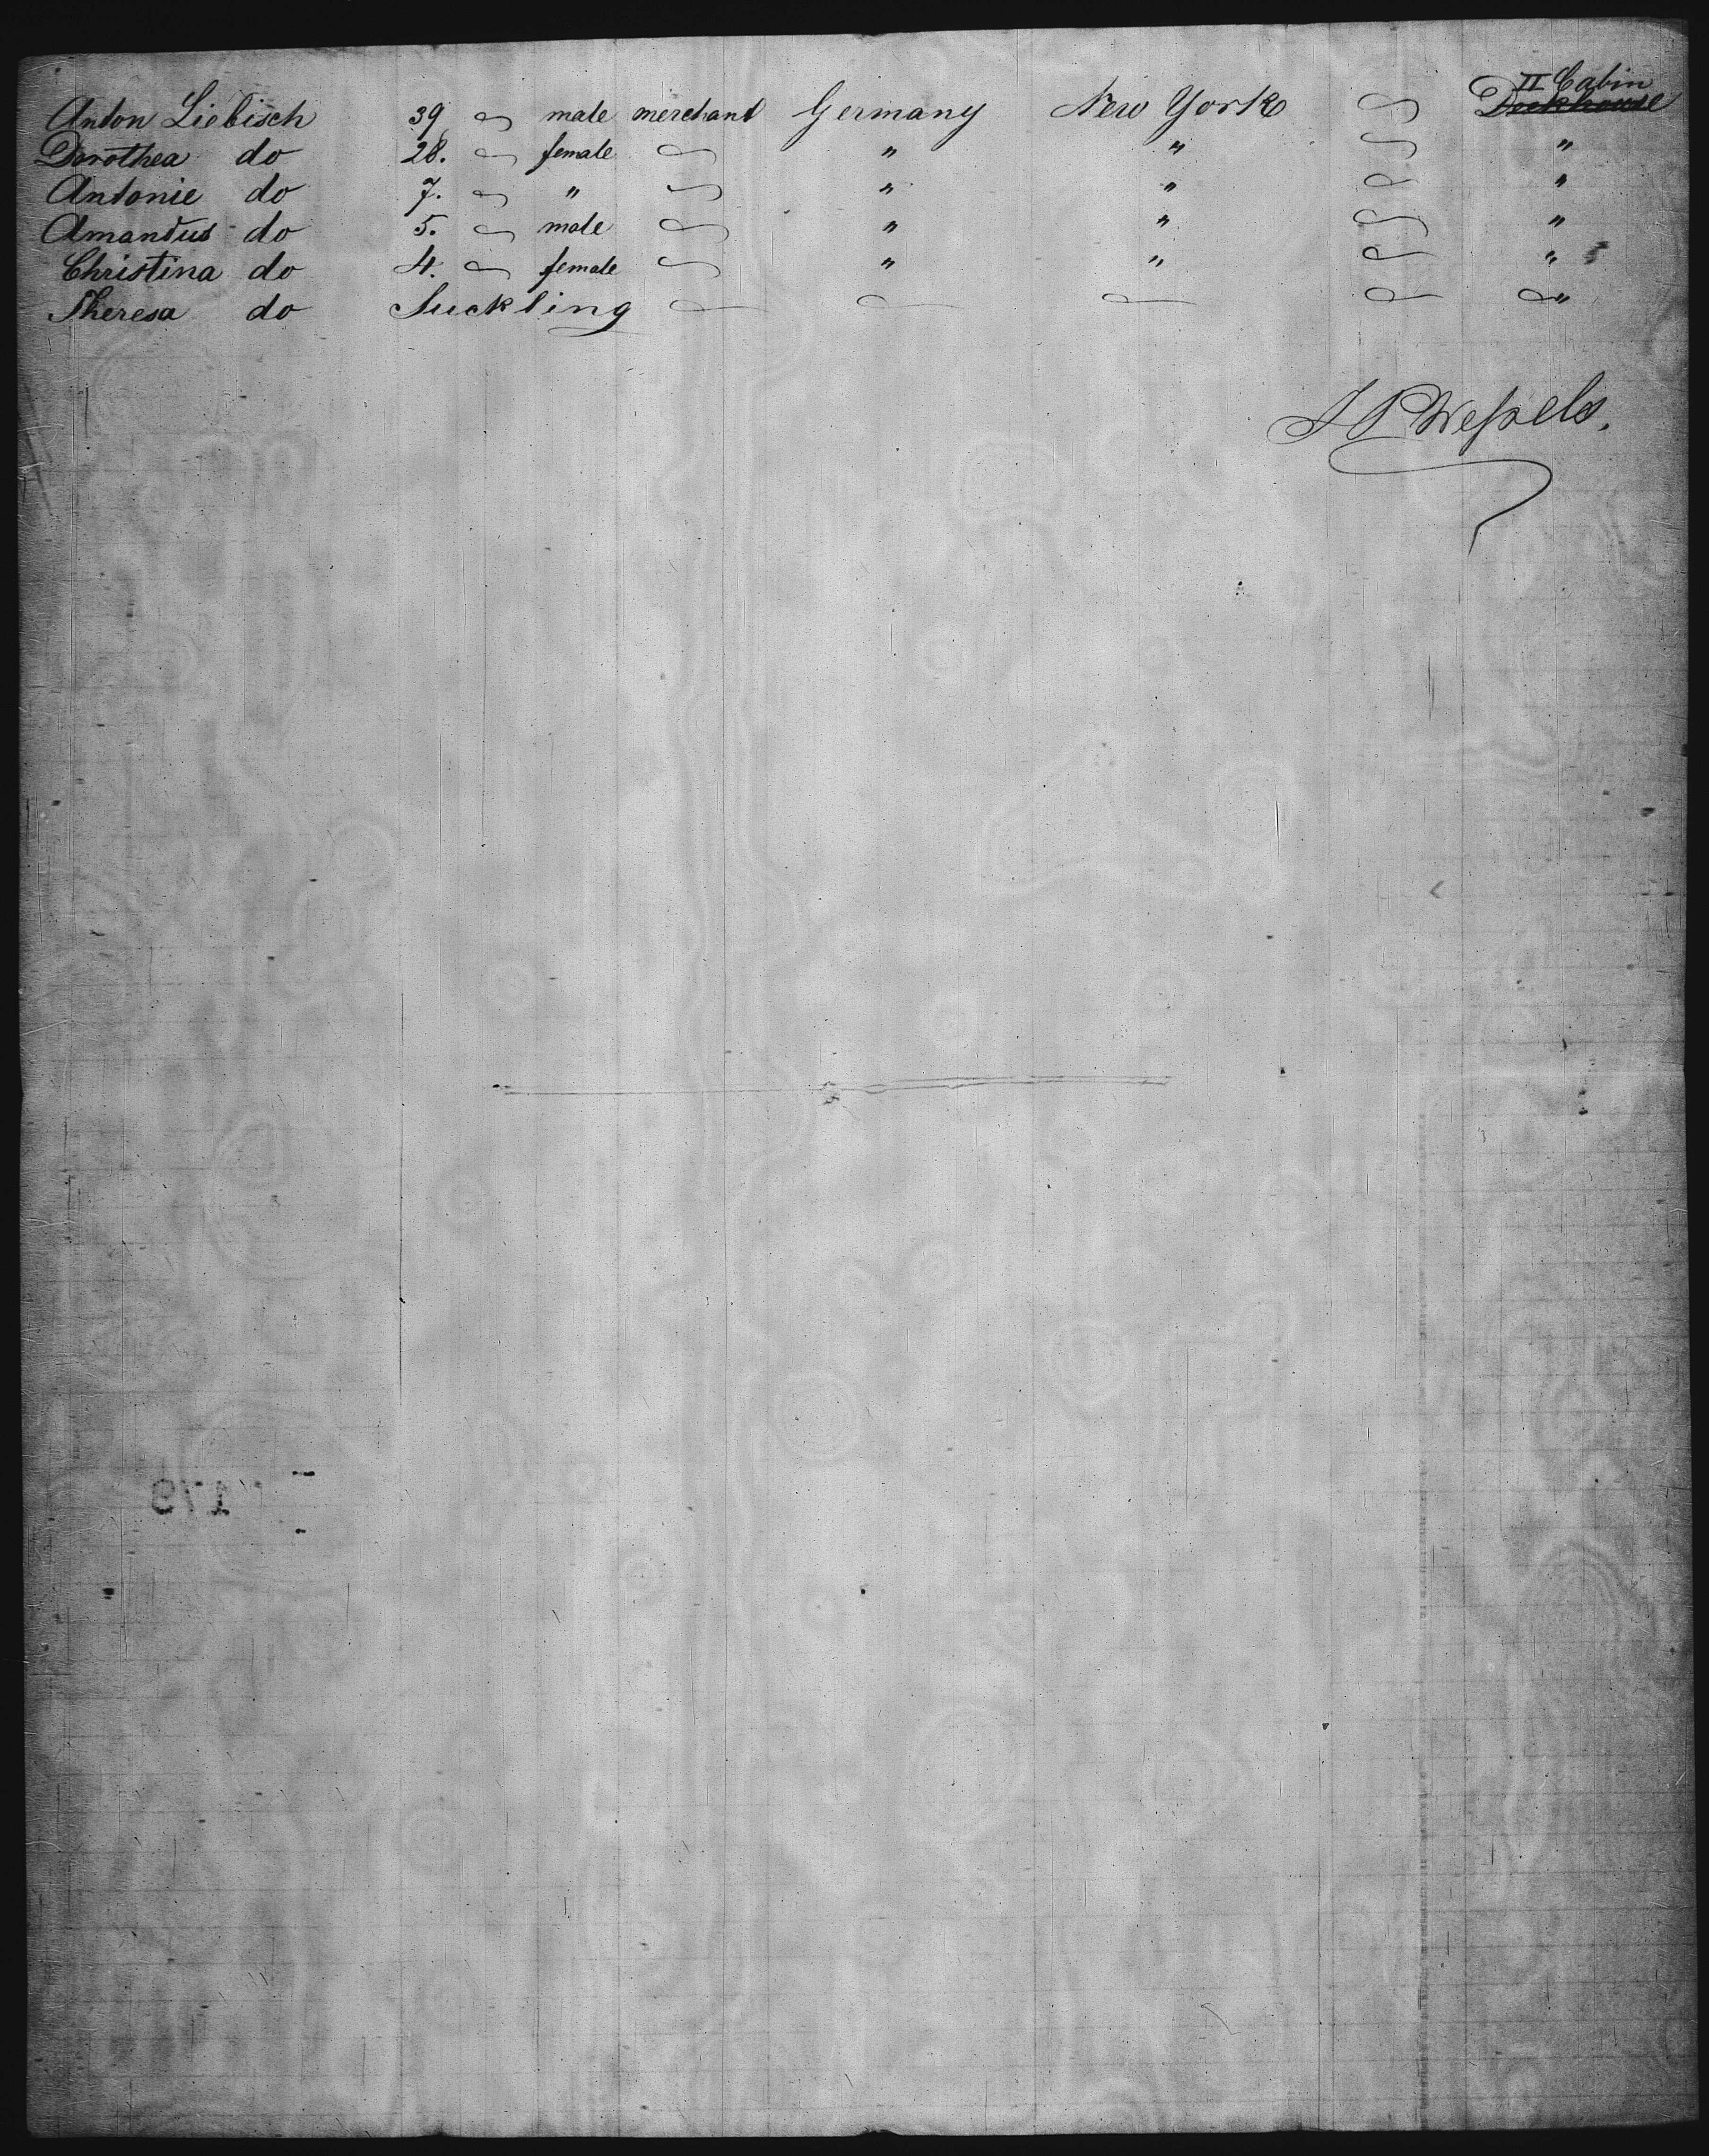 Anton Liebisch 39 male merchant Germany New York II Cabin Deckhouse
Dorothea do 28. female " " "
Antonie do 7. " " " "
Amandus do 5. male " " "
Christina do 4. female " " "
Theresa do Suckling "
Wessels.
179